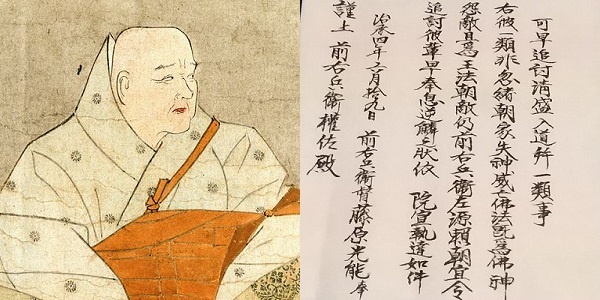 可早追討清盛入道幷一類事
右彼一類非忽緒朝家失神威亡佛法既爲佛神
怨敵且爲王法朝敵仍前右兵衛左源頼朝宜令
追討彼輩早奉息逆鱗之状依 院宣執達如件
治承四年六月拾九日 前右兵衛督藤原光能奉
謹上 前右兵衛權佐殿